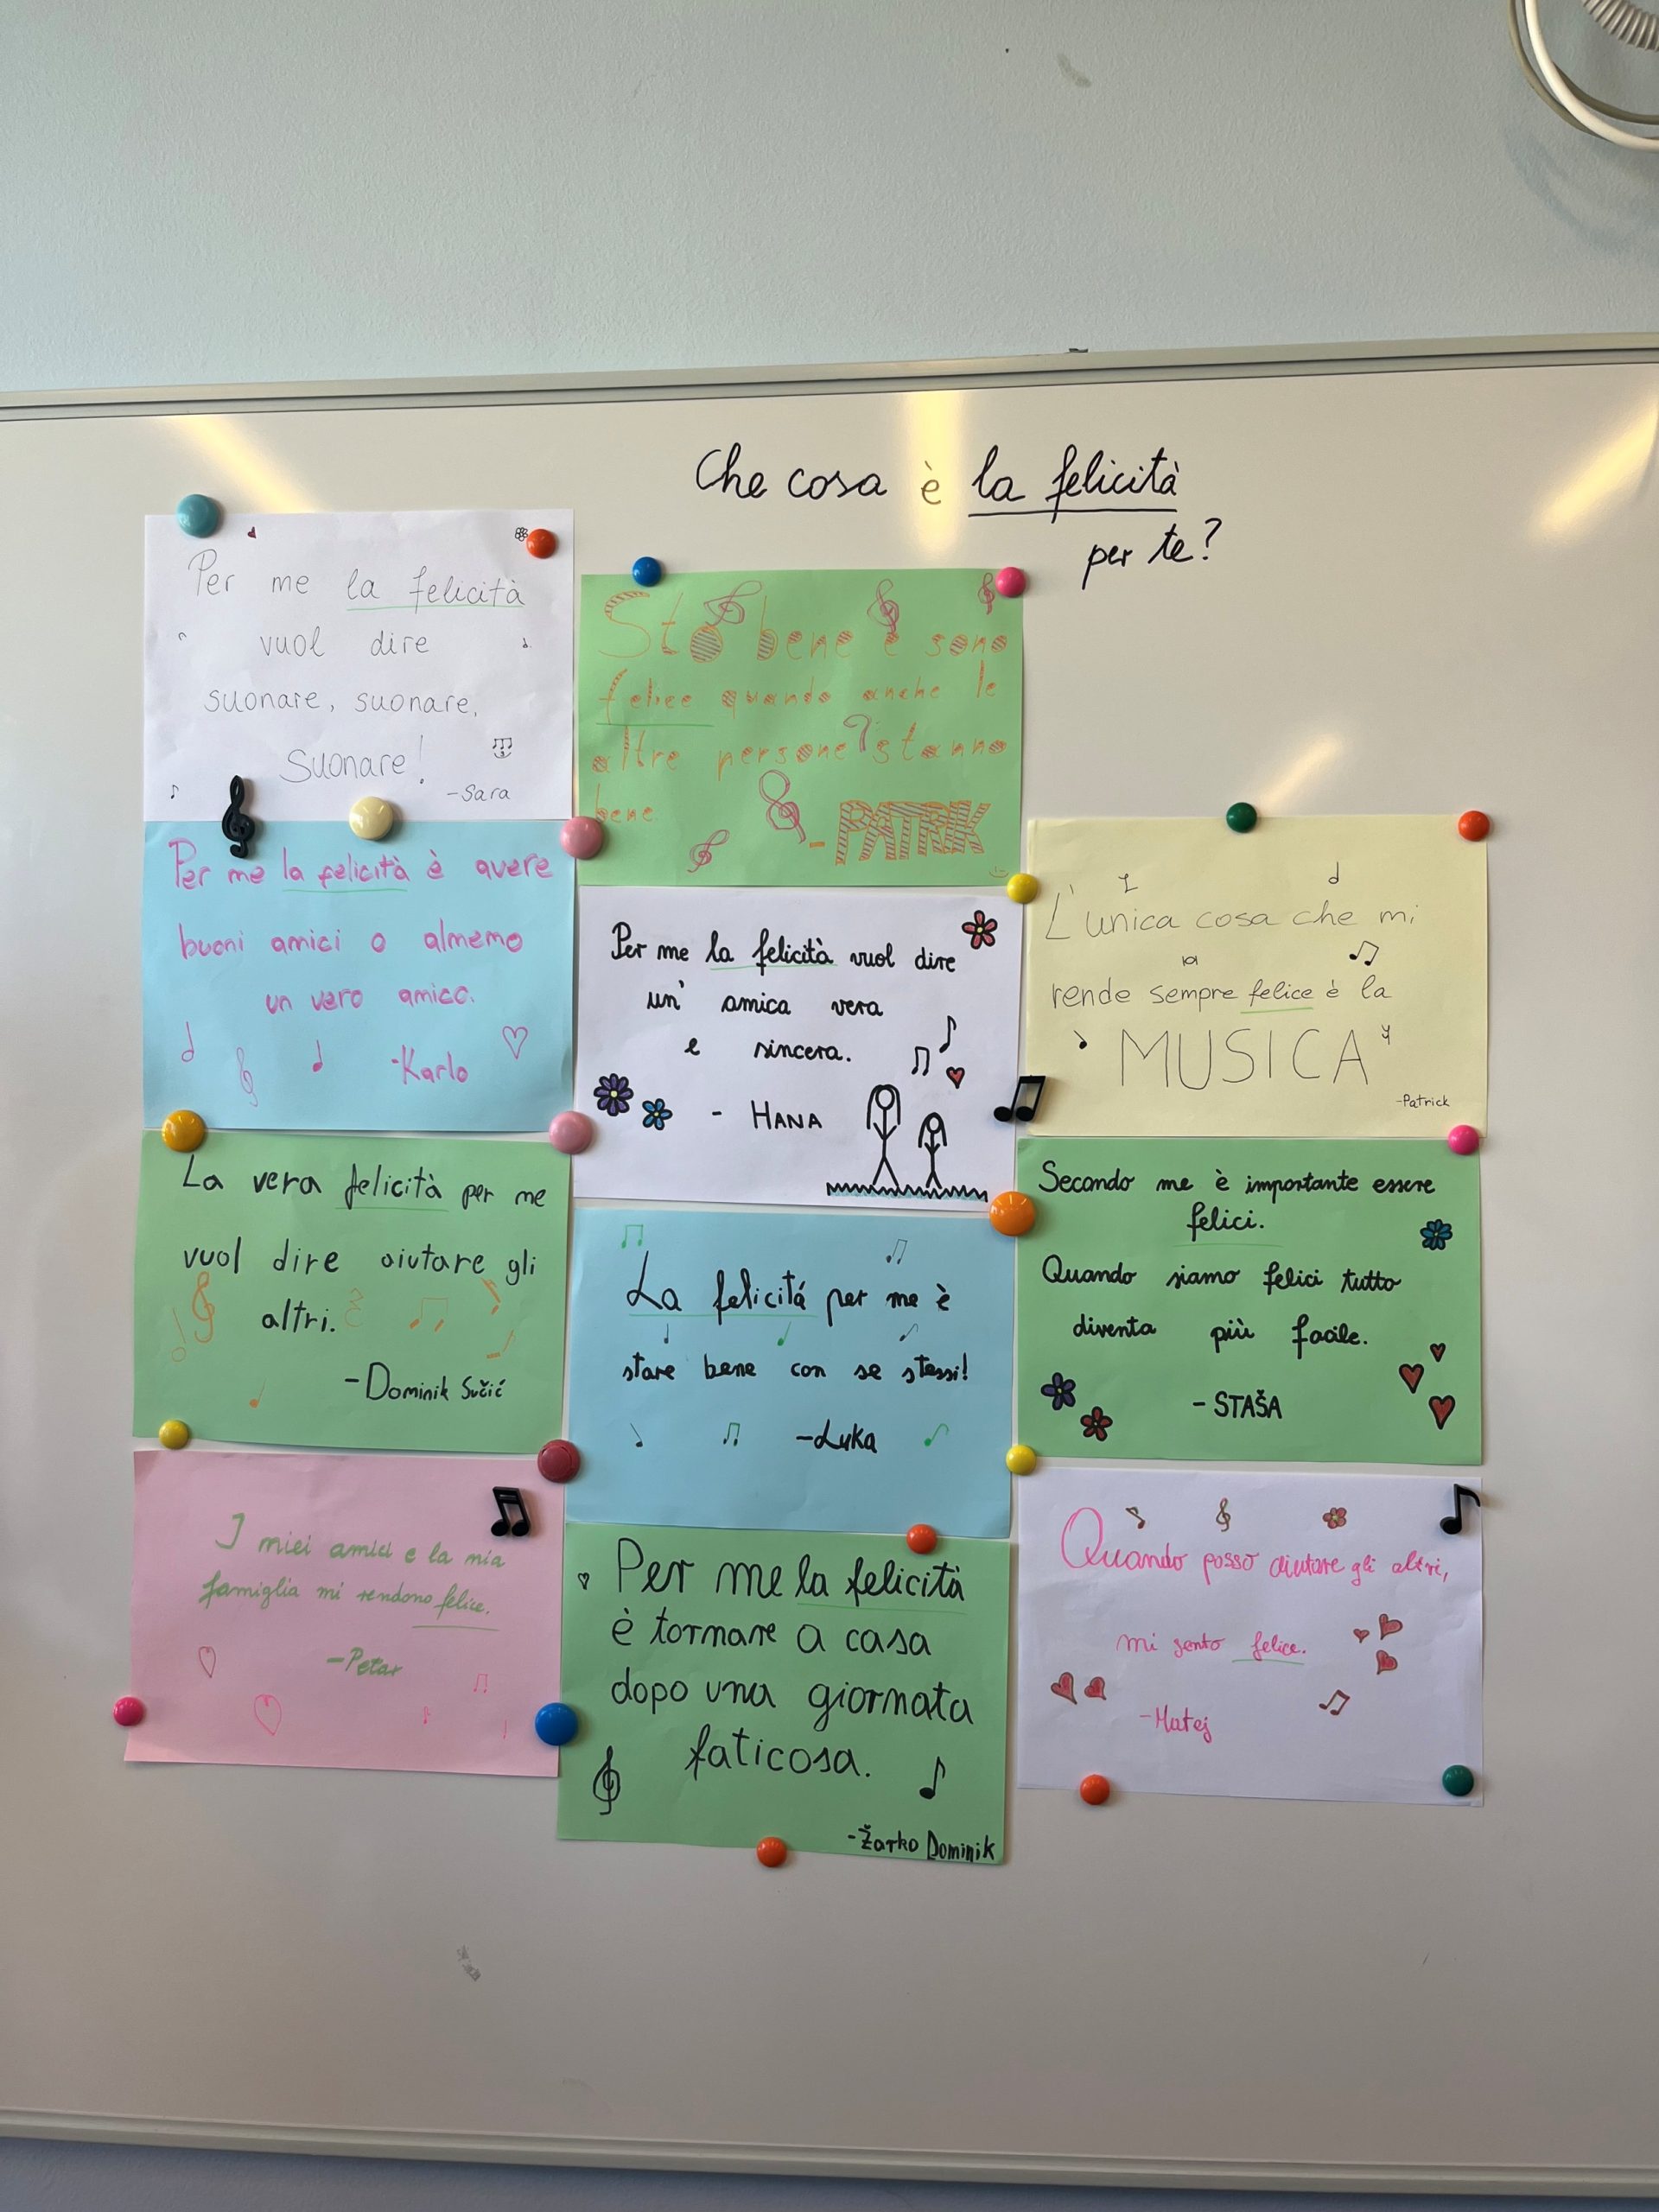 Che cosa è la felicità
per te?
Per me la felicità
vuol dire
suonare, suonare,
suonare!
-Sara
Per me la felicità è avere
buoni amici o almemo
un vero amico.
-Karlo
La vera felicità per me
vuol dire aiutare gli
altri.
-Dominik Sučić
I miei amici e la mia
famiglia mi rendono felice.
-Petar
Sto bene e sono
felice quando anche le
altre persone stanno
bene
-PATRIK
Per me la felicità vuol dire
un' amica vera
e sincera.
- HANA
La felicitá per me è
stare bene con se stessi!
-Luka
Per me la felicità
è tornare a casa
dopo una giornata
faticosa.
-Žarko Dominik
L'unica cosa che mi
rende sempre felice è la
MUSICA
-Patrick
Secondo me è importante essere
felici.
Quando siamo felici tutto
diventa più facile.
- STAŠA
Quando posso aiutare gli altri,
mi sento felice.
-Matej